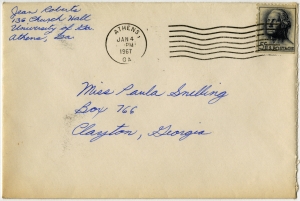 Jean Roberts
136 Church Hall
University of Ga.
Athens, Ga.
ATHENS
JAN 4
PM
1967
GA.
Miss Paula Snelling
Box 766
Clayton, Georgia